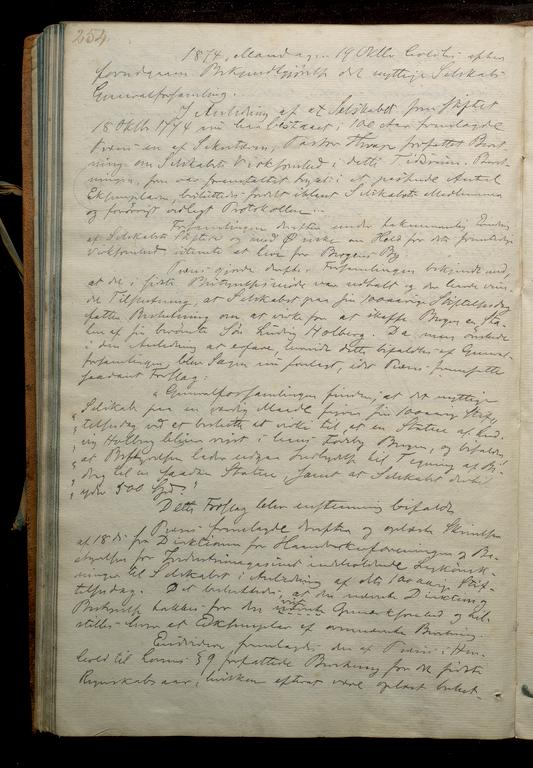 254.
1874, Mandag 19 Oktbr holdtes efter
forudgaaen Bekjendtgjørelse det nyttige Selskabs
Generalforsamling.
I Anledning af at Selskabet fra Stiftet
18 Oktbr 1774 nu har bestaaet i 100 Aar fremlagde
Præses en af Sekretæren, Pastor forfattet Beret-
ning om Selskabets Virksomhed i dette Tidsrum. Beret-
ningen, som var i et Antal
Exemplarer, fordelt iblandt Selskabets Medlemmer
og forøvrigt vedlagt Protokollen.
Forsamlingen under
af Selskabets Stiftere og med Ønske om Held for dets fremtidige
Virksomhed at leve for Bergens By.
Præses gjorde derefter Forsamlingen bekjendt med,
at der i sidste var udtalt og den
de Tilslutning, at Selskabet paa sin 100aarige Stiftelsesdag
fatter Beslutning om at virke for at skaffe Bergen en Sta-
tue af sin berømte Søn Ludvig Holberg. Da man ønskede
i den Anledning at erfare, hvorvidt dette bifaldes af General-
forsamlingen, blev Sagen nu forelagt, idet Præses fremsatte
saadant Forslag:
"Generalforsamlingen finder, at det nyttige
Selskab paa en værdig Maade feirer sin 100aarig Stift-
telsesdag ved at beslutte at virke til, at en Statue af Lud-
vig Holberg bliver reist i hans Fødeby Bergen, og bifalder,
at Bestyrelsen lader udgaa Indbydelse til Tegning af Bi-
drag til en saadan Statue samt at Selskabet dertil
yder 500 Spd."
Dette Forslag blev enstemmig bifaldt.
Præses fremlagde derefter og oplæste Skrivelse
af 18 ds fra Direktionen for Haandværkerforeningen og Be-
styrelsen for Industrimagasinet indeholdende Lykønsk-
ninger til Selskabet i Anledning af dets 100aarige Stif-
telsesdag. Det besluttedes, at den nævnte Direktion og
Bestyrelse takkes for den viste Opmærksomhed og til-
stilles hver et Exemplar af ommeldte Beretning.
Endvidere fremlagdes den af Præses i Hen-
hold til Lovens § 9 forfattede Beretning for det sidste
Regnskabsaar, hvilken efterat være oplæst beslut-